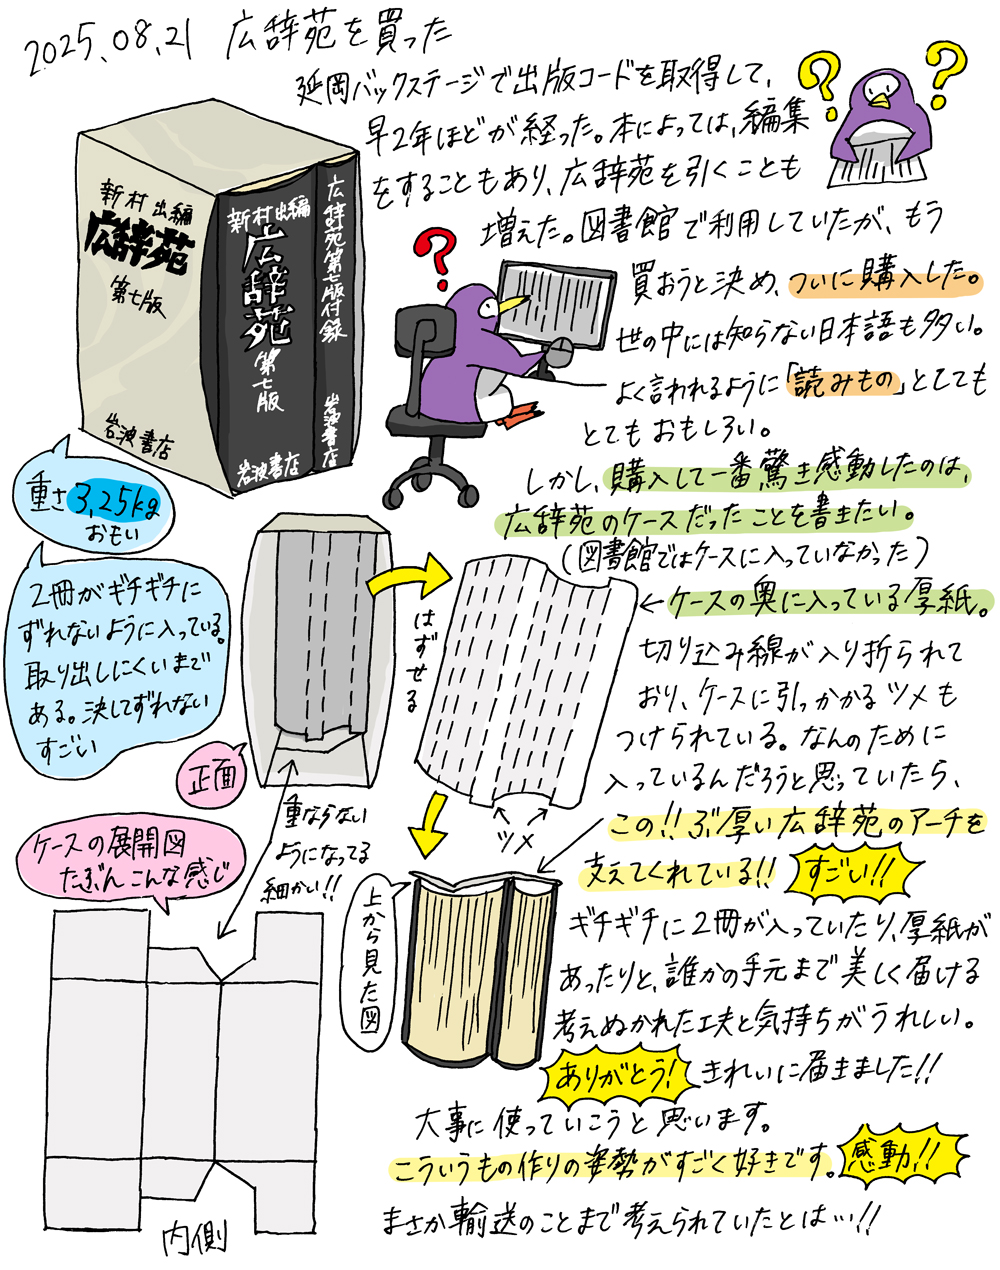 2025.08.21 広辞苑を買った
延岡バックステージで出版コードを取得して、
早2年ほどが経った。本によっては、編集
をすることもあり、広辞苑を引くことも
増えた。図書館で利用していたが、もう
買おうと決め、ついに購入した。
世の中には知らない日本語も多い。
よく言われるように「読みもの」としても
とてもおもしろい。
しかし、購入して一番驚き感動したのは、
広辞苑のケースだったことを書きたい。
(図書館ではケースに入っていなかった)
←ケースの奥に入っている厚紙。
切り込み線が入り折られて
おり、ケースに引っかかるツメも
つけられている。なんのために
入っているんだろうと思っていたら、
この!!ぶ厚い広辞苑のアーチを
支えてくれている!! すごい!!
ギチギチに2冊が入っていたり、厚紙が
あったりと、誰かの手元まで美しく届ける
考えぬかれた工夫と気持ちがうれしい。
ありがとう! きれいに届きました!!
大事に使っていこうと思います。
こういうもの作りの姿勢がすごく好きです。 感動!!
まさか輸送のことまで考えられていたとは…!!
新村出編
広辞苑
第七版
岩波書店
新村出編
広辞苑
第七版
岩波書店
広辞苑第七版付録
岩波書店
?
?
?
重さ3,25kg
おもい
2冊がギチギチに
ずれないように入っている。
取り出しにくいまで
ある。決してずれない
すごい
正面
はずせる
ツメ
重ならない
ようになってる
細かい!!
上から見た図
ケースの展開図
たぶんこんな感じ
内側